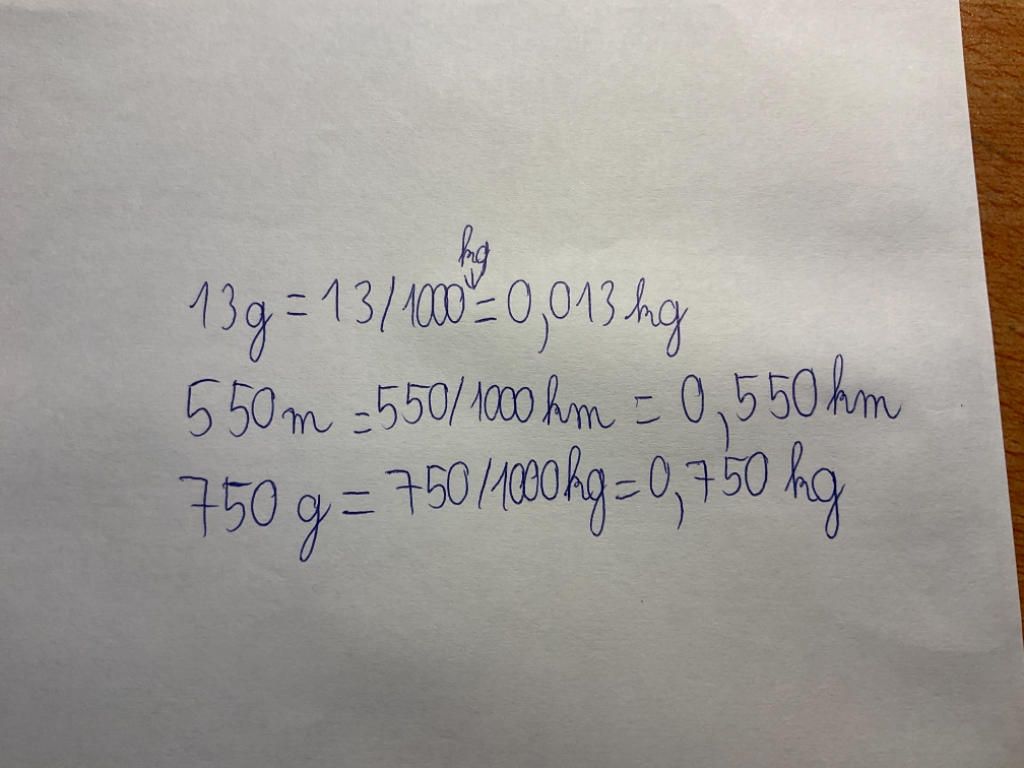 kg
13g = 13/1000 = 0,013 kg
550m = 550/1000 km = 0,550 km
750 g = 750/1000 kg = 0,750 kg